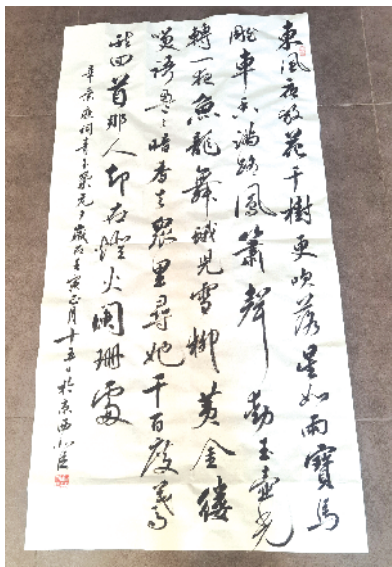 東風夜放花千樹更吹落星如雨寶馬
雕車香滿路鳳簫聲動玉壺光
轉一夜魚龍舞蛾兒雪柳黃金縷
笑語盈〻暗香去眾里尋她千百度驀
然回首那人却在燈火闌珊處
辛棄疾詞青玉案元夕歲次壬寅正月十五日於京西